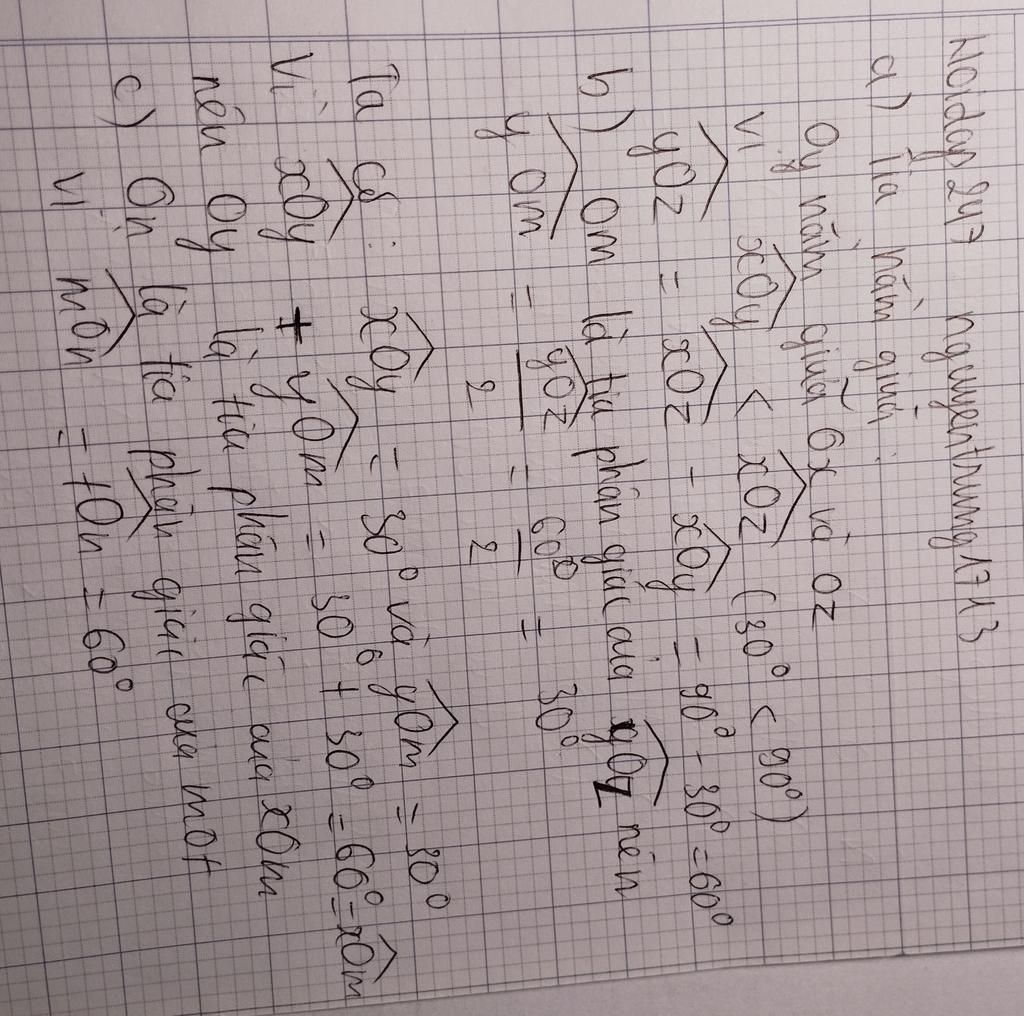 Hoidap247 nguyentrung1713
a) Tia nằm giữa:
Oy nằm giữa Ox và Oz
Vì xOy < xOz (30° < 90°)
yOz = xOz - xOy = 90° - 30° = 60°
b) Om là tia phân giác của yOz nên
yOm = yOz/2 = 60°/2 = 30°
Ta có: xOy = 30° và yOm = 30°
Vì xOy + yOm = 30° + 30° = 60° = xOm
nên Oy là tia phân giác của xOm
c) On là tia phân giác của mOt
Vì mOn = tOn = 60°